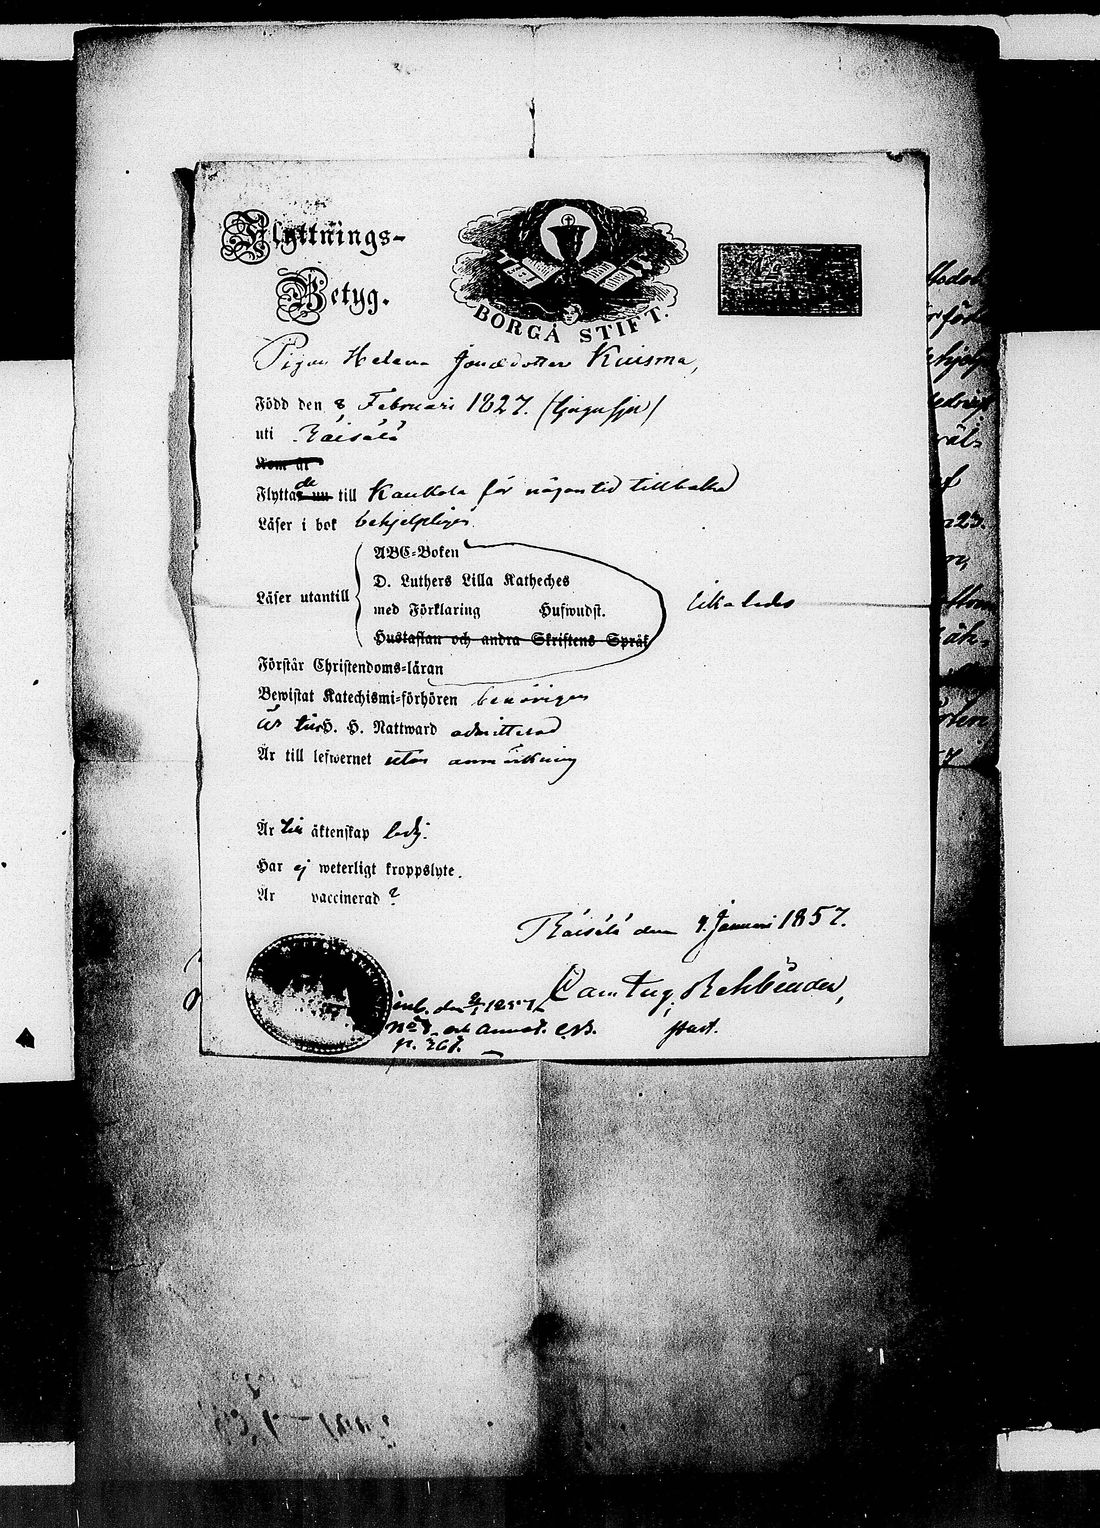 Flyttnings-
Betyg.
BORGÅ STIFT.
Pigan Helena Jonædotter Kuisma,
Född den 8 Februari 1827. (tjugusju)
uti Räisälä
Kom år
Flyttade nu till Kaukola för någon tid tillbaka
Läser i bok behjelpligen
Läser utantill
ABC-Boken
D. Luthers Lilla Katheches
med Förklaring Hufwudst.
Hustaflan och andra Skriftens Språk
likaledes
Förstår Christendoms-läran
Bewistat Katechismi-förhören behörigen
är till H. H. Nattward admitterad
Är till lefwernet utan anmärkning
Är till äktenskap ledig.
Har ej weterligt kroppslyte.
Är vaccinerad ?
Räisälä den 4. Januari 1857.
inl. den 1857
No och annot. C.B.
p. 267.
Rehbinder,
Past.